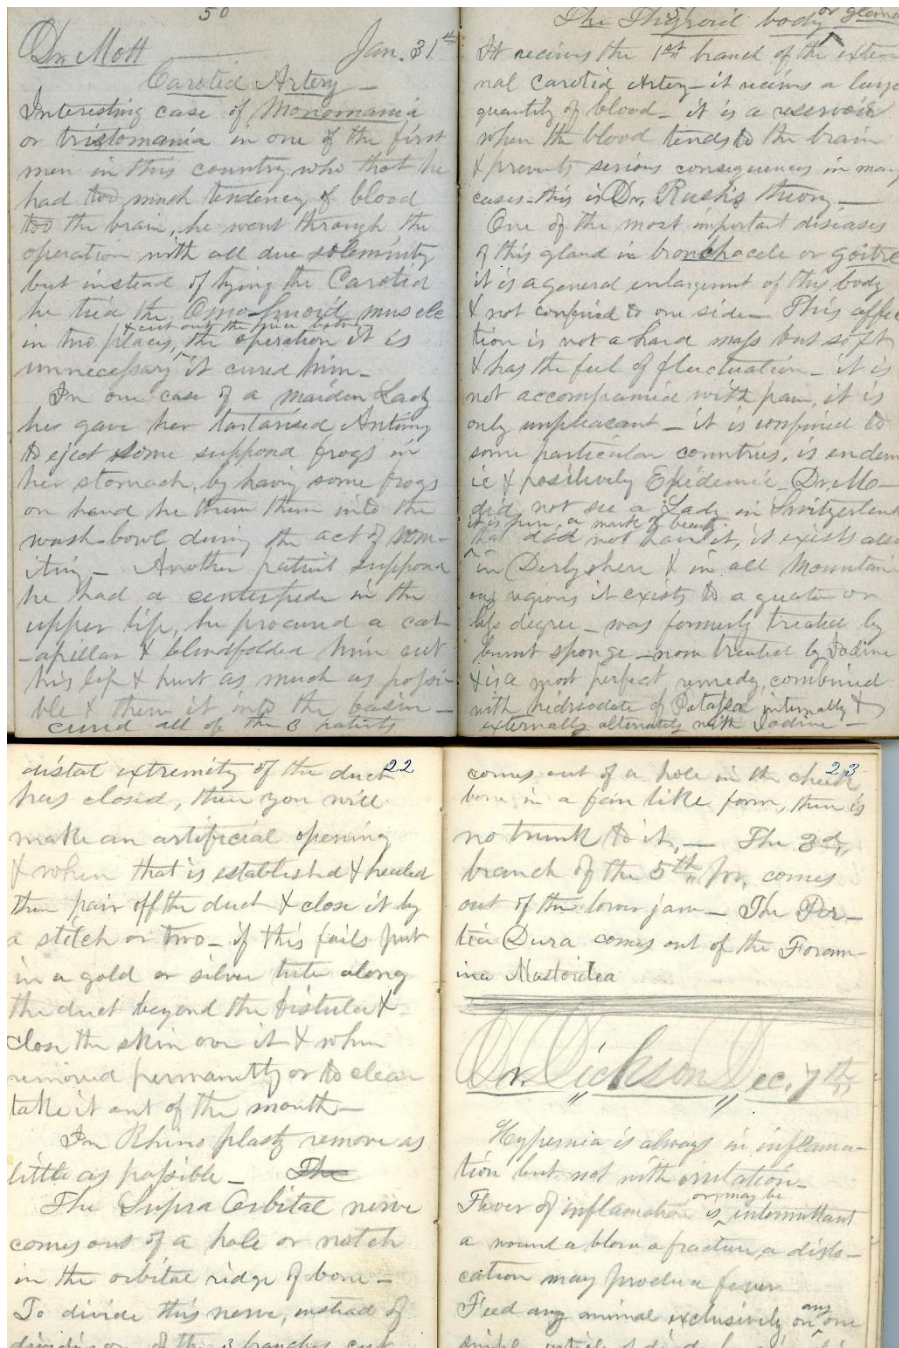 50
Dr. Mott Jan. 31st
Carotid Artery —
Interesting case of Monomania
or tristomania in one of the first
men in this country, who that he
had too much tendency of blood
too the brain, he went through the
operation with all due solemnity
but instead of tying the Carotid
he tied the Omo-hyoid muscle
& cut out the piece
in two places, the operation it is
unnecessary it cured him —
In one case of a maiden Lady
her gave her tartarised Antimy
to eject some suppond frogs in
her stomach, by having some frogs
on hand he them them into the
wash-bowl during the act of vom-
iting — Another patient suppond
he had a centerpede in the
upper lip, he procured a cat-
-apillar & blindfolded him cut
his lip & hurt as much as possi-
ble & them it into the basin —
cured all of the 3 patients
51
The Thyroid body or gland
It recivns the 1st branch of the exter-
nal carotid Artery — it recivns a large
quantity of blood — it is a reservoir
when the blood tends to the brain
& prevents serious consequences in many
cases — this is Dr. Rush's theory. —
One of the most important diseases
of this gland is bronchocele or goitre
it is a general enlargment of this body
& not confined to one side — This affec
tion is not a hard mass but soft
& has the feel of fluctuation — it is
not accompanied with pain, it is
only unpleasant — it is confined to
some particular countries, is endem
ic & positively Epidemic — Dr. Mo—
did not see a Lady in Switzerland
it is here a mark of beauty
that did not have it, it exists also
in Derbyshere & in all Mountain-
ous regions it exists to a greater or
less degree — was formerly treated by
burnt sponge — now treated by Iodine
& is a most perfect remedy, combined
with hidriodate of Potassa internally &
externally alternately with Iodine —
22
distal extremity of the duct
has closed, then you will
make an artificial opening
& when that is established & healed
then pair off the duct & close it by
a stitch or two — if this fails put
in a gold or silver tube along
the duct beyond the fistula &
close the skin over it & when
removed permantly or to clear
take it out of the mouth —
In Rhino plasty remove as
little as possible — The
The Supra Orbital nerve
comes out of a hole or notch
in the orbital ridge of bone —
To divide this nerve, instead of
dividing one of the 3 branches cut
23
comes out of a hole in the cheek
bone in a fan like form, then is
no trunk to it, — The 3rd
branch of the 5th pr. comes
out of the lower jaw — The Por-
tia Dura comes out of the Foram-
ina Mastoidea
Dr. Dickson Dec. 7th
Hypernia is always in inflama-
tion but not with irritation —
or may be
Fever of inflamation is, intermittant
a wound a blow a fracture, a dislo-
cation may produce fever
any
Feed any animal exclusively on one